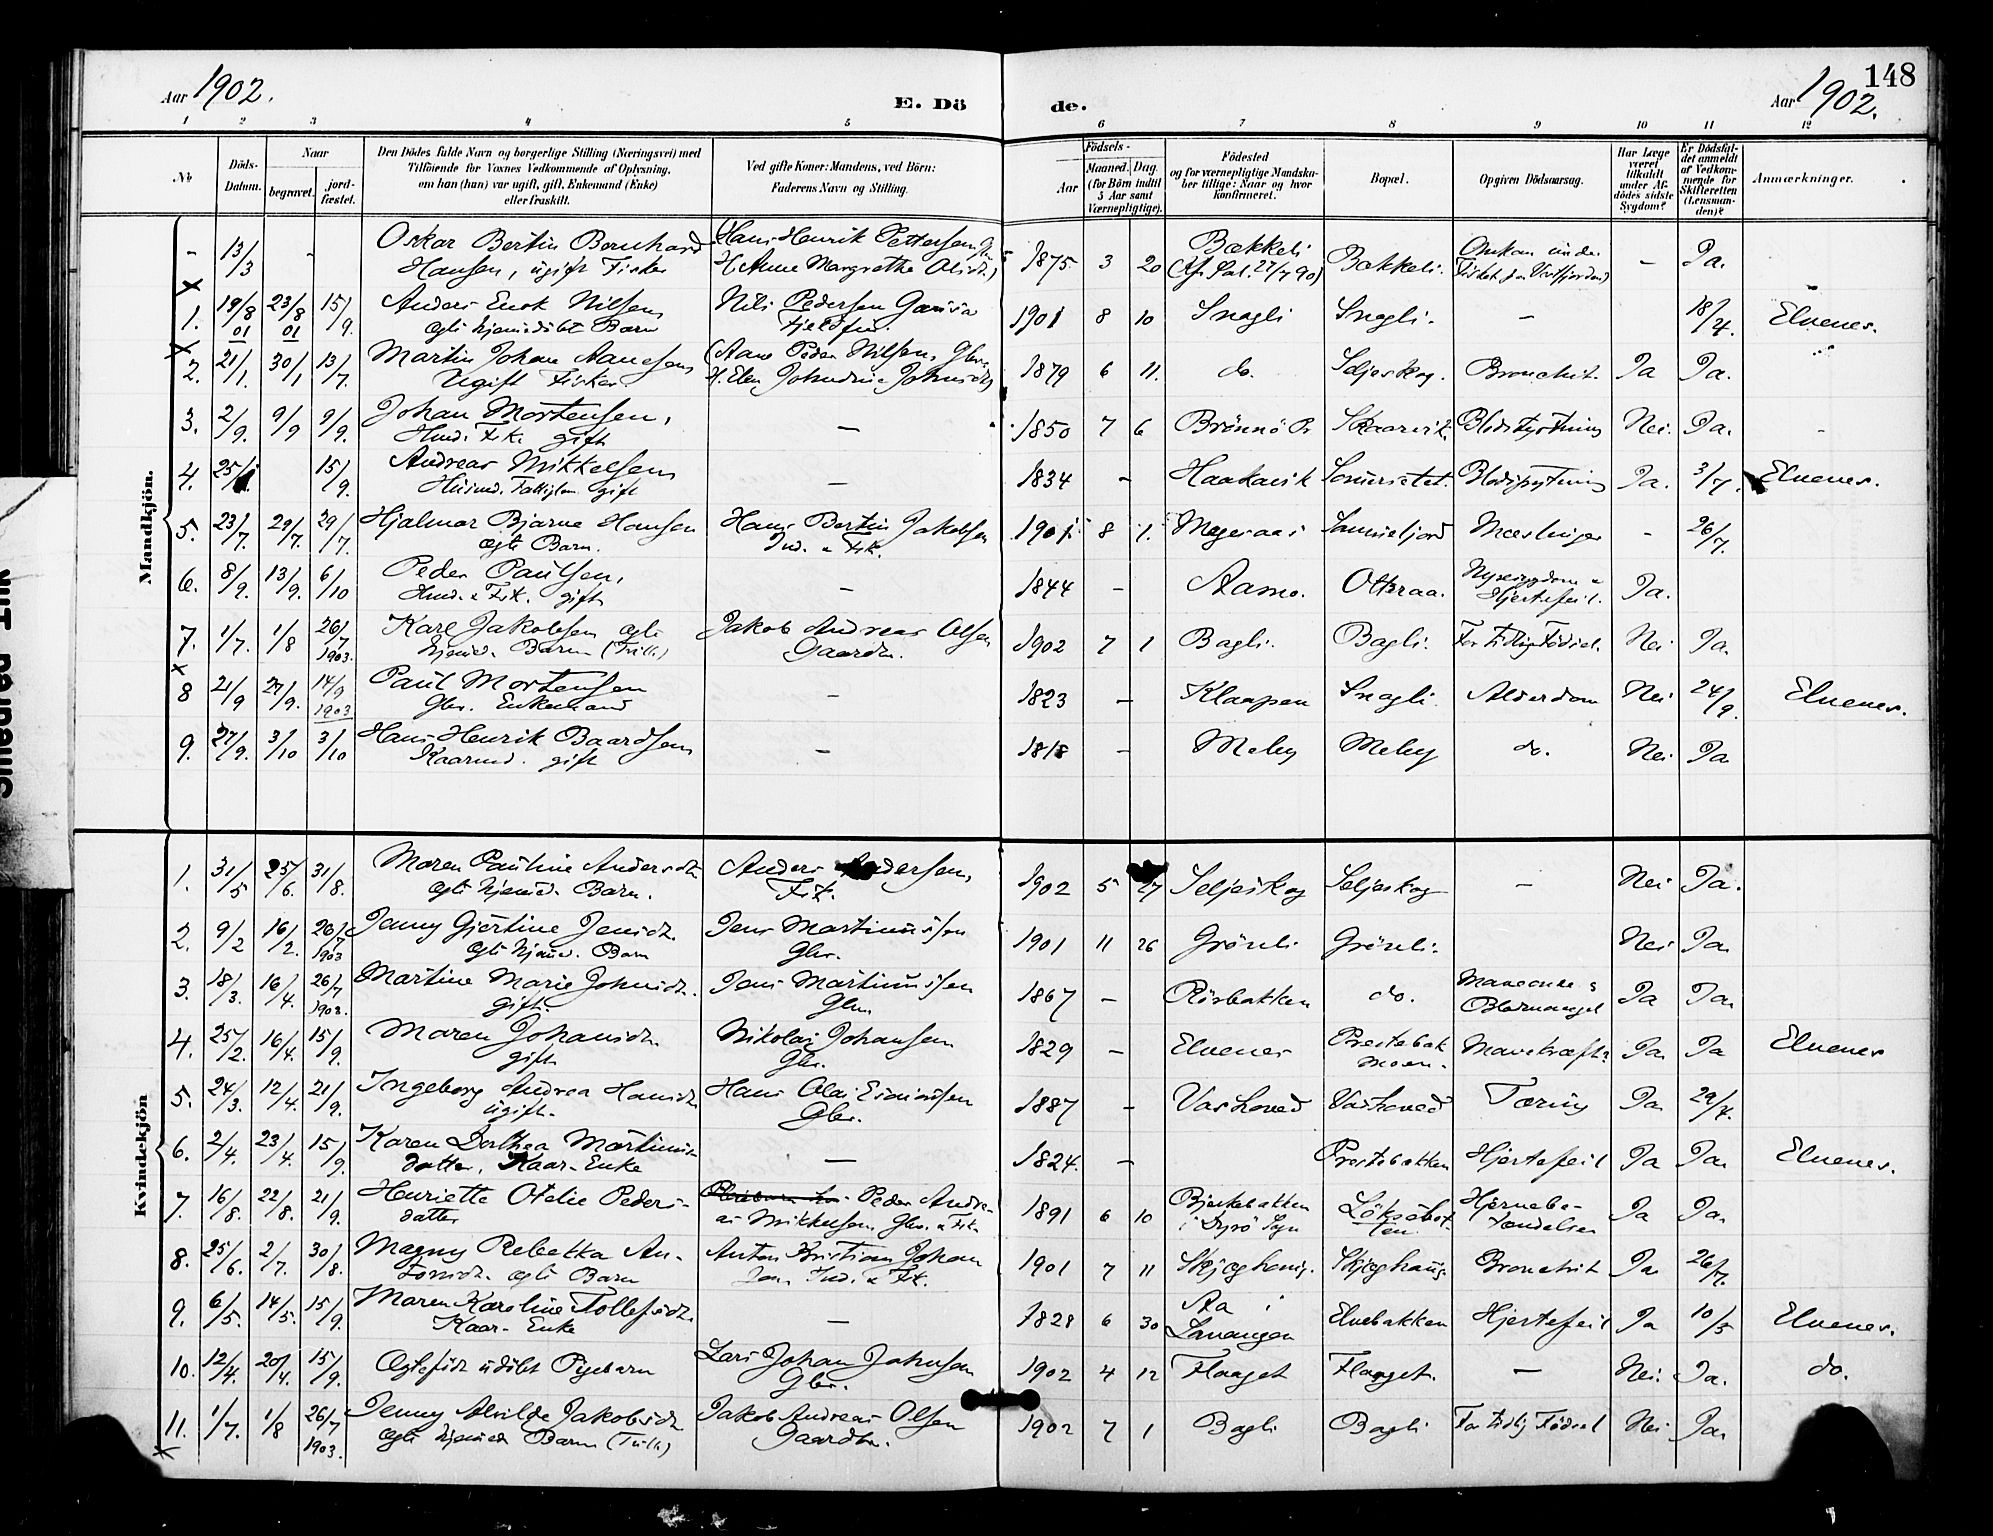 148
Aar 1902.
E. Dö
de.
Aar 1902.
1 2 3 4 5 6 7 8 9 10 11 12
№
Döds-Datum.
Naar
begravet.
jord-fæstet.
Den Dödes fulde Navn og borgerlige Stilling (Næringsvei) med
Tilföiende for Voxnes Vedkommende af Oplysning,
om han (hun) var ugift, gift, Enkemand (Enke)
eller fraskilt.
Ved gifte Koner: Mandens, ved Börn:
Faderens Navn og Stilling.
Födsels-
Aar
Maaned. Dag.
(for Börn indtil
5 Aar samt
Værnepligtige).
Födested
og for værnepligtige Mandska-
ber tillige: Naar og hvor
konfirmeret.
Bopæl.
Opgiven Dödsaarsag.
Har Læge
været
tilkaldt
under Af-
dödes sidste
Sygdom?
Er Dödsfal-
det anmeldt
af Vedkom-
mende for
Skifteretten
(Lensman-
den)?
Anmærkninger.
Mandkjön.
- 13/3 - Oskar Bertin Bernhard Hans Henrik Pettersen 1875 3 20 Bækkeli Bækkeli. Omkom under - Ja.
Hansen, ugift Fisker H. Anne Margrethe
1. 19/8 01 23/8 01 15/9. Anders Enok Nilsen Nils Pedersen 1901 8 10 Snagli Snagli. - 18/4. Elvenes.
ægte hjemdöbt Barn
2. 21/1. 30/1 13/7. Martin Johan Aanesen (Aane Peder Nilsen, Gbr. 1879 6 11. do. Seljeskog. Bronchit. Ja Ja.
Ugift Fisker.
3. 2/9. 9/9 9/9. Johan Mortensen, - 1850 7 6 Brönnö Pr Skaarvik. Nei. Ja.
gift
4. 15/9. Andreas Mikkelsen - 1834 - Haakavik Ja. 3/7. Elvenes.
gift
5. 23/7. 29/7. 29/7. Hjalmar Bjarne Hansen Hans Bertin Jakobsen 1901 8 1. Mæslinger - 26/7.
ægte Barn. Ind. & Fisk.
6. 8/9. 13/9. 6/10 Peder Paulsen, - 1844 - Aamo. Otteraa. Nyresygdom & Ja.
gift Hjertefeil.
7. 1/7. 1/8 26/7 1903. Karl Jakobsen ægte Jakob Andreas Olsen 1902 7 1 Bagli. Bagli. For tidlig Födsel. Nei Ja.
hjemd. Barn (Tvill.) Gaardbr.
8 21/9 27/9. 14/9 1903 Paul Mortensen - 1823 - Klaapen Snagli. Alderdom Nei 24/9. Elvenes.
Gbr. Enkemand
9. 27/9. 3/10 3/10 Hans Henrik Baardsen - 1818 - Meby Meby do. Nei Ja
Kaarmd. gift
Kvindekjön
1. 31/5 25/6. 31/8. Maren Pauline Andersdt. Anders Andersen, 1902 5 27 Seljeskog Seljeskog - Nei Ja.
ægte hjemd. Barn. Fisk.
2. 9/2 16/2. 26/7 1903 Jenny Gjertine Jensdt. Jens Martinussen 1901 11 26 Grönli Grönli. Nei Ja
ægte hjemd. Barn Gbr.
3. 18/3. 16/4. 26/7 1903. Martine Marie Johnsdt. Jens Martinussen 1867 - Rösbakken do. Ja Ja
gift. Gbr. Blodmangel
4. 25/2. 16/4. 15/9. Maren Johansdt. Nikolai Johansen 1829 - Elvenes Prestebak Mavekræft. Ja Ja Elvenes
gift Gbr. moen.
5. 24/3. 12/4. 21/9. Ingeborg Andrea Hansdt. Hans Olai Einarssen 1887 - Vashoved Vashoved Tæring Ja 29/4.
ugift. Gbr.
6. 2/4. 23/4. 15/9. Karen Dorthea Martinus - 1824. - Prestebakken Hjertefeil Ja Ja. Elvenes.
datter, Kaar-Enke
7. 16/8. 22/8. 21/9. Henriette Ofelie Peders- Peder Andre- 1891 6 10 Bjerkebakken Löksebot- Hjernebe- Ja Ja
datter as Mikkelsen, Gbr. & Fisk. i Dyrö Sogn ten tændelse
8. 25/6. 2/7. 30/8. Magny Rebekka An- Anton Kristian Johan 1901 7 11 Skjæghaug. Skjæghaug. Bronchit Ja 26/7.
tonsdt. ægte Barn sen Ind. & Fisk.
9. 6/5. 14/5. 15/9. Maren Karoline Tollefsdt. - 1828 6 30 Aa i Elvebakken Hjertefeil Ja 10/5 Elvenes.
Kaar-Enke Lavangen
10. 12/4. 20/4. 15/9. Ægtefödt udöbt Pigebarn Lars Johan Johnsen 1902 4 12 Flaaget Flaaget. - Nei. Ja. do.
Gbr.
11. 1/7. 1/8 26/7 1903. Jenny Alvilde Jakobsdt. Jakob Andreas Olsen 1902 7 1 Bagli Bagli For tidlig Födsel Nei Ja
ægte hjemd Barn (Tvill.) Gaardbr.